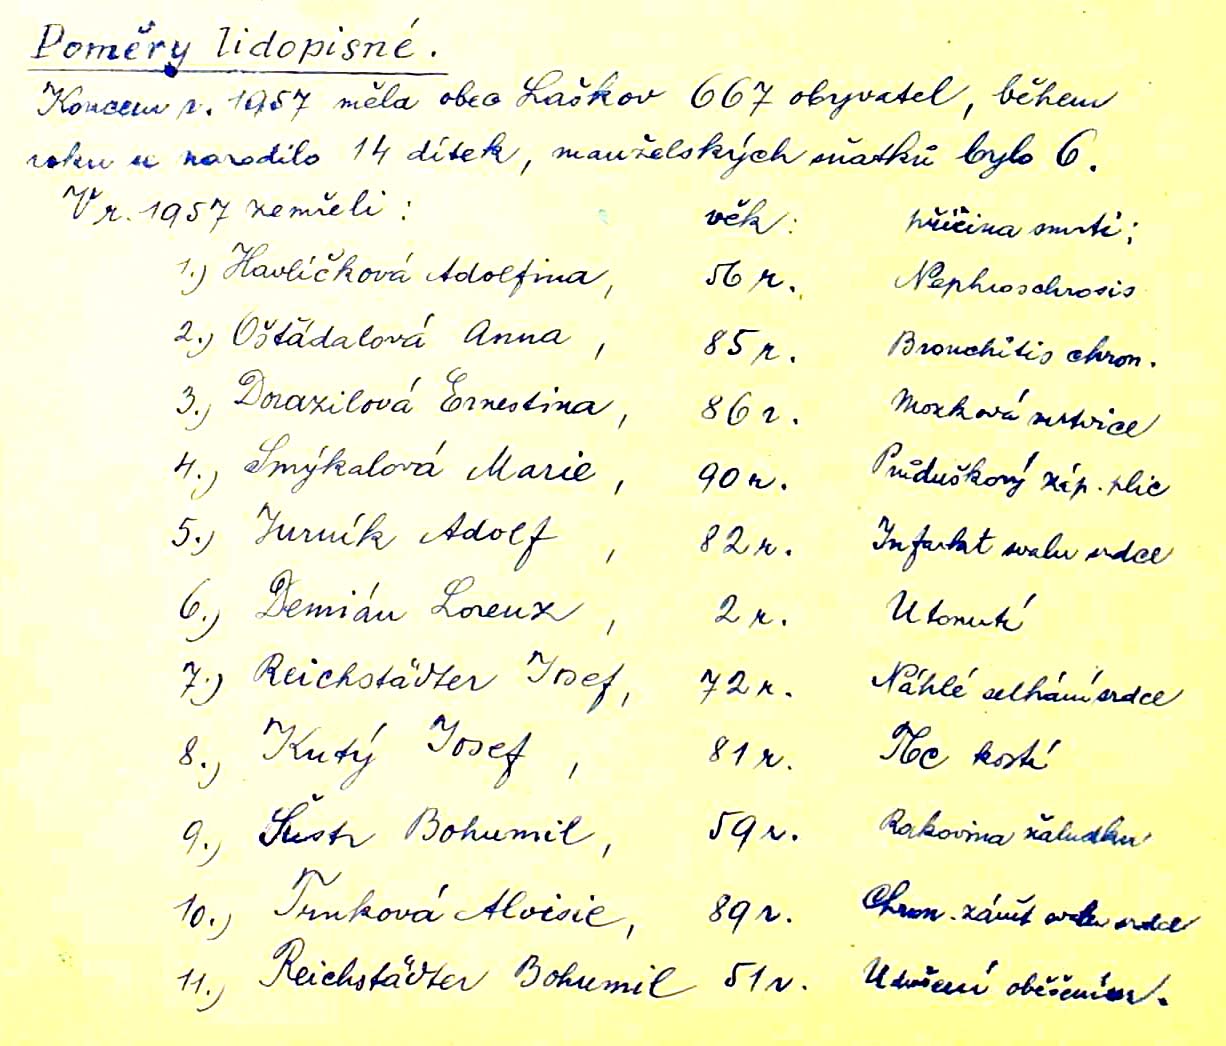 Poměry lidopisné.
Koncem r. 1957 měla obec Laškov 667 obyvatel, během
roku se narodilo 14 dítek, manželských sňatků bylo 6.
V r. 1957 zemřeli: věk: příčina smrti:
1.) Havlíčková Adolfina, 56 r. Nephroschrosis
2.) Oštádalová Anna, 85 r. Bronchitis chron.
3.) Dorazilová Ernestina, 86 r. Mozková mrtvice
4.) Smýkalová Marie, 90 r. Průduškový záp. plic
5.) Jurník Adolf, 82 r. Infarkt svalu srdce
6.) Demián Lorenz, 2 r. Utonutí
7.) Reichstädter Josef, 72 r. Náhlé selhání srdce
8.) Kutý Josef, 81 r. Tbc kostí
9.) Šustr Bohumil, 59 r. Rakovina žaludku
10.) Trnková Aloisie, 89 r. Chron. zánět svalu srdce
11.) Reichstädter Bohumil 51 r. Udušení oběšením.